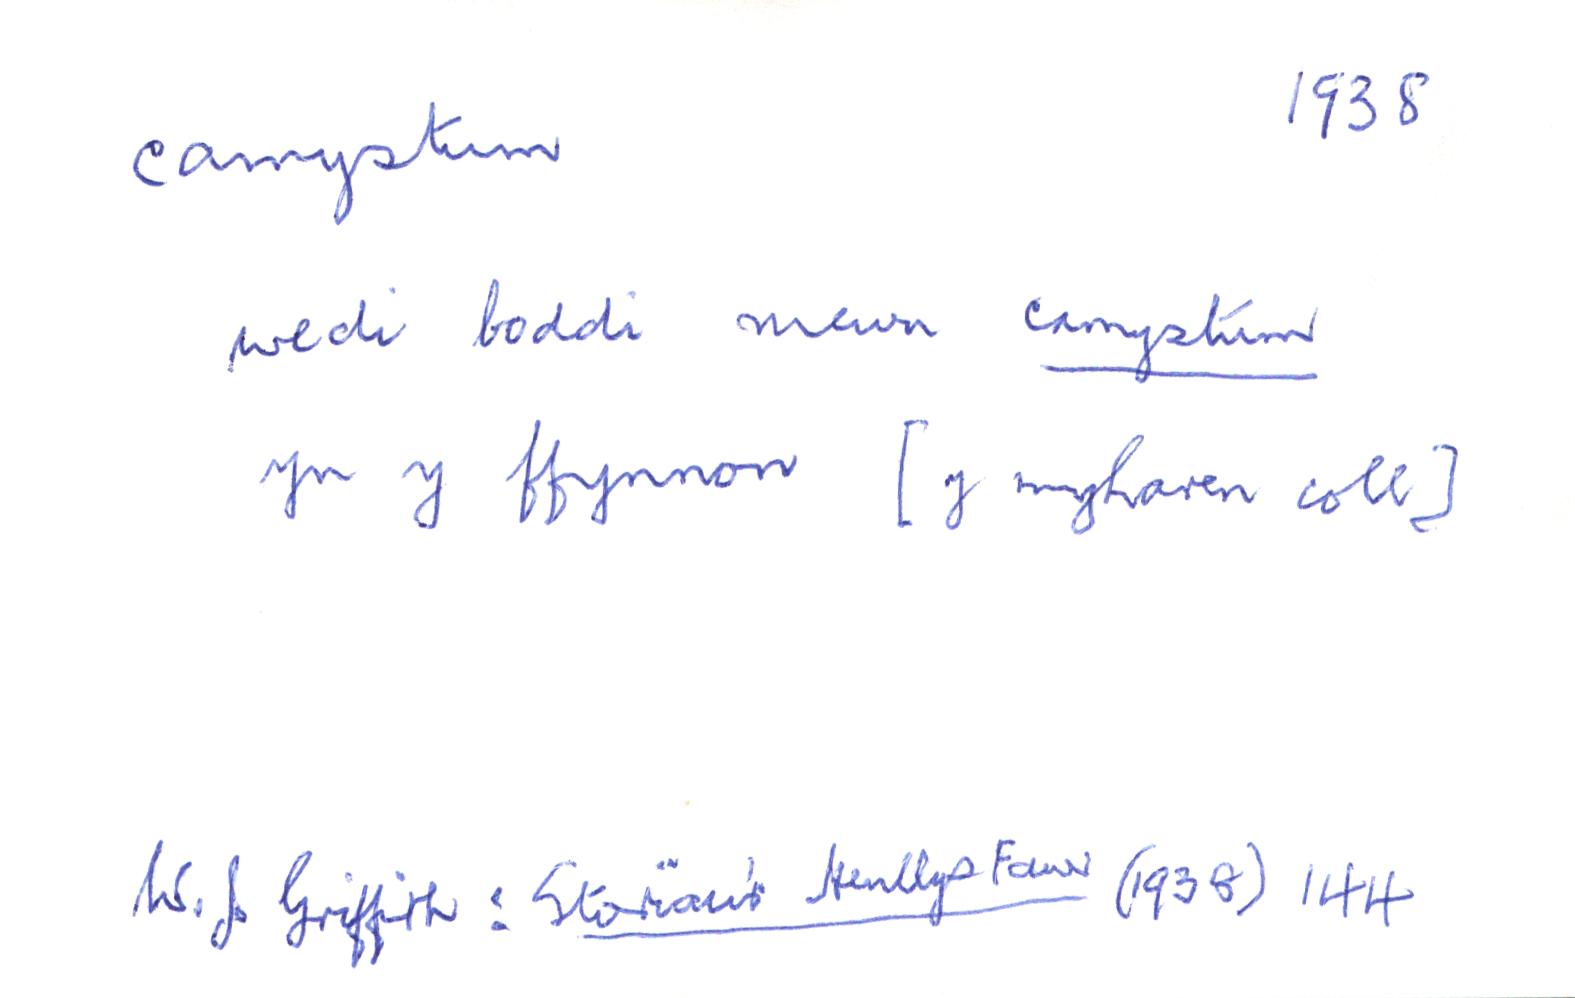 1938
camystum
wedi boddi mewn camystum
yn y ffynnon [y myharen coll]
W. J. Griffith : Storïau'r Henllys Fawr (1938) 144